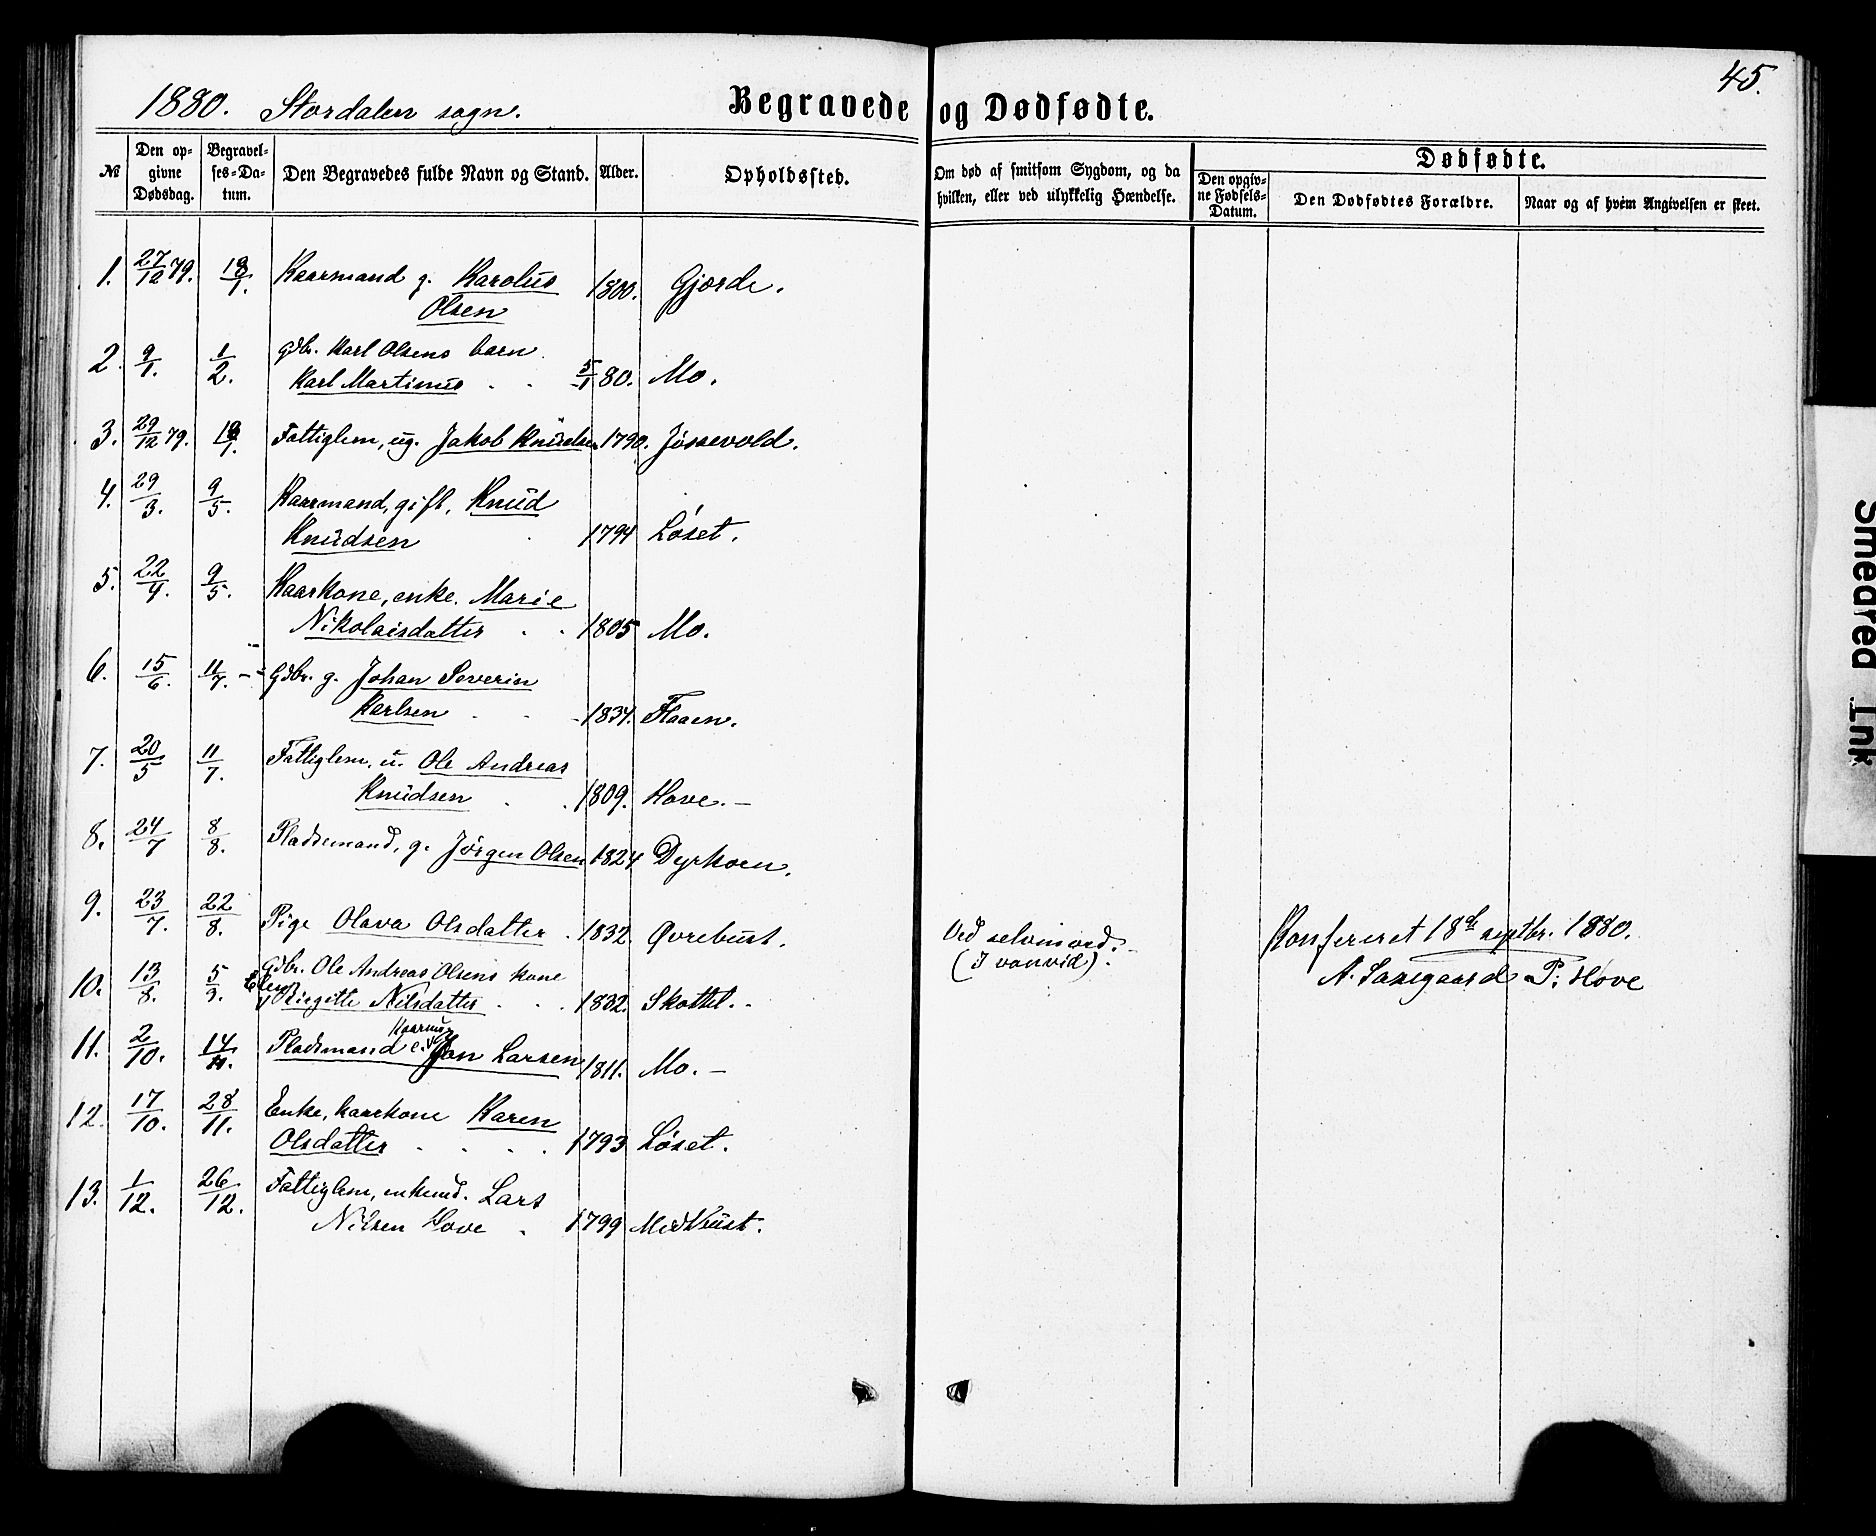 45.
1880. Stordalen sogn.
Begravede og Dødfødte.
№
Den opgivne Dødsdag.
Begravelses-Datum.
Den Begravedes fulde Navn og Stand.
Alder.
Opholdssted.
Om død af smitsom Sygdom, og da hvilken, eller ved ulykkelig Hændelse.
Dødfødte.
Den opgivne Fødsels-Datum.
Den Dødfødtes Forældre.
Naar og af hvem Angivelsen er skeet.
1. 27/12 79. /1. Kaarmand g. Karolus
Olsen 1800. Gjørde.
2. 9/1. 1/2. Gdbr. Karl Olsens barn
Karl Martinus . . 5/1 80. Mo.
3. 29/12 79. /1. Fattiglem, ug. Jakob Knudsen 1790. Jøssevold.
4. 29/3. 9/5. Kaarmand, gift, Knud
Knudsen . 1794 Løset.
5. 22/4. 9/5. Kaarkone, enke. Marie
Nikolaisdatter . . 1805 Mo.
6. 15/6. 11/7. Gdbr. g. Johan Severin
Karlsen . . 1834. Flaaen.
7. 20/5 11/7. Fattiglem, u. Ole Andreas
Knudsen . . 1809. Hove. —
8. 24/7 8/8. Pladsemand, g. Jørgen Olsen 1824 Dyrkorn.
9. 23/7. 22/8. Pige Olava Olsdatter . 1832. Øvrebust. Ved selvmord. —
(I vanvid).
Konfereret 18de septbr. 1880.
A. Saxegaard P. Hove
10. 13/8. 5/9. Gdbr. Ole Andreas Olsens kone
Elen Birgitte Nilsdatter . . . 1832. Skottet. -
11. 2/10. 14/11. Pladsmand Jon Larsen 1811. Mo. —
12. 17/10. 28/11. Enke, kaarkone Karen
Olsdatter . . . . 1793 Løset.
13. 1/12. 26/12. Fattiglem, enkemd. Lars
Nilsen Hove . 1799 Midtbust.
Smeared Ink